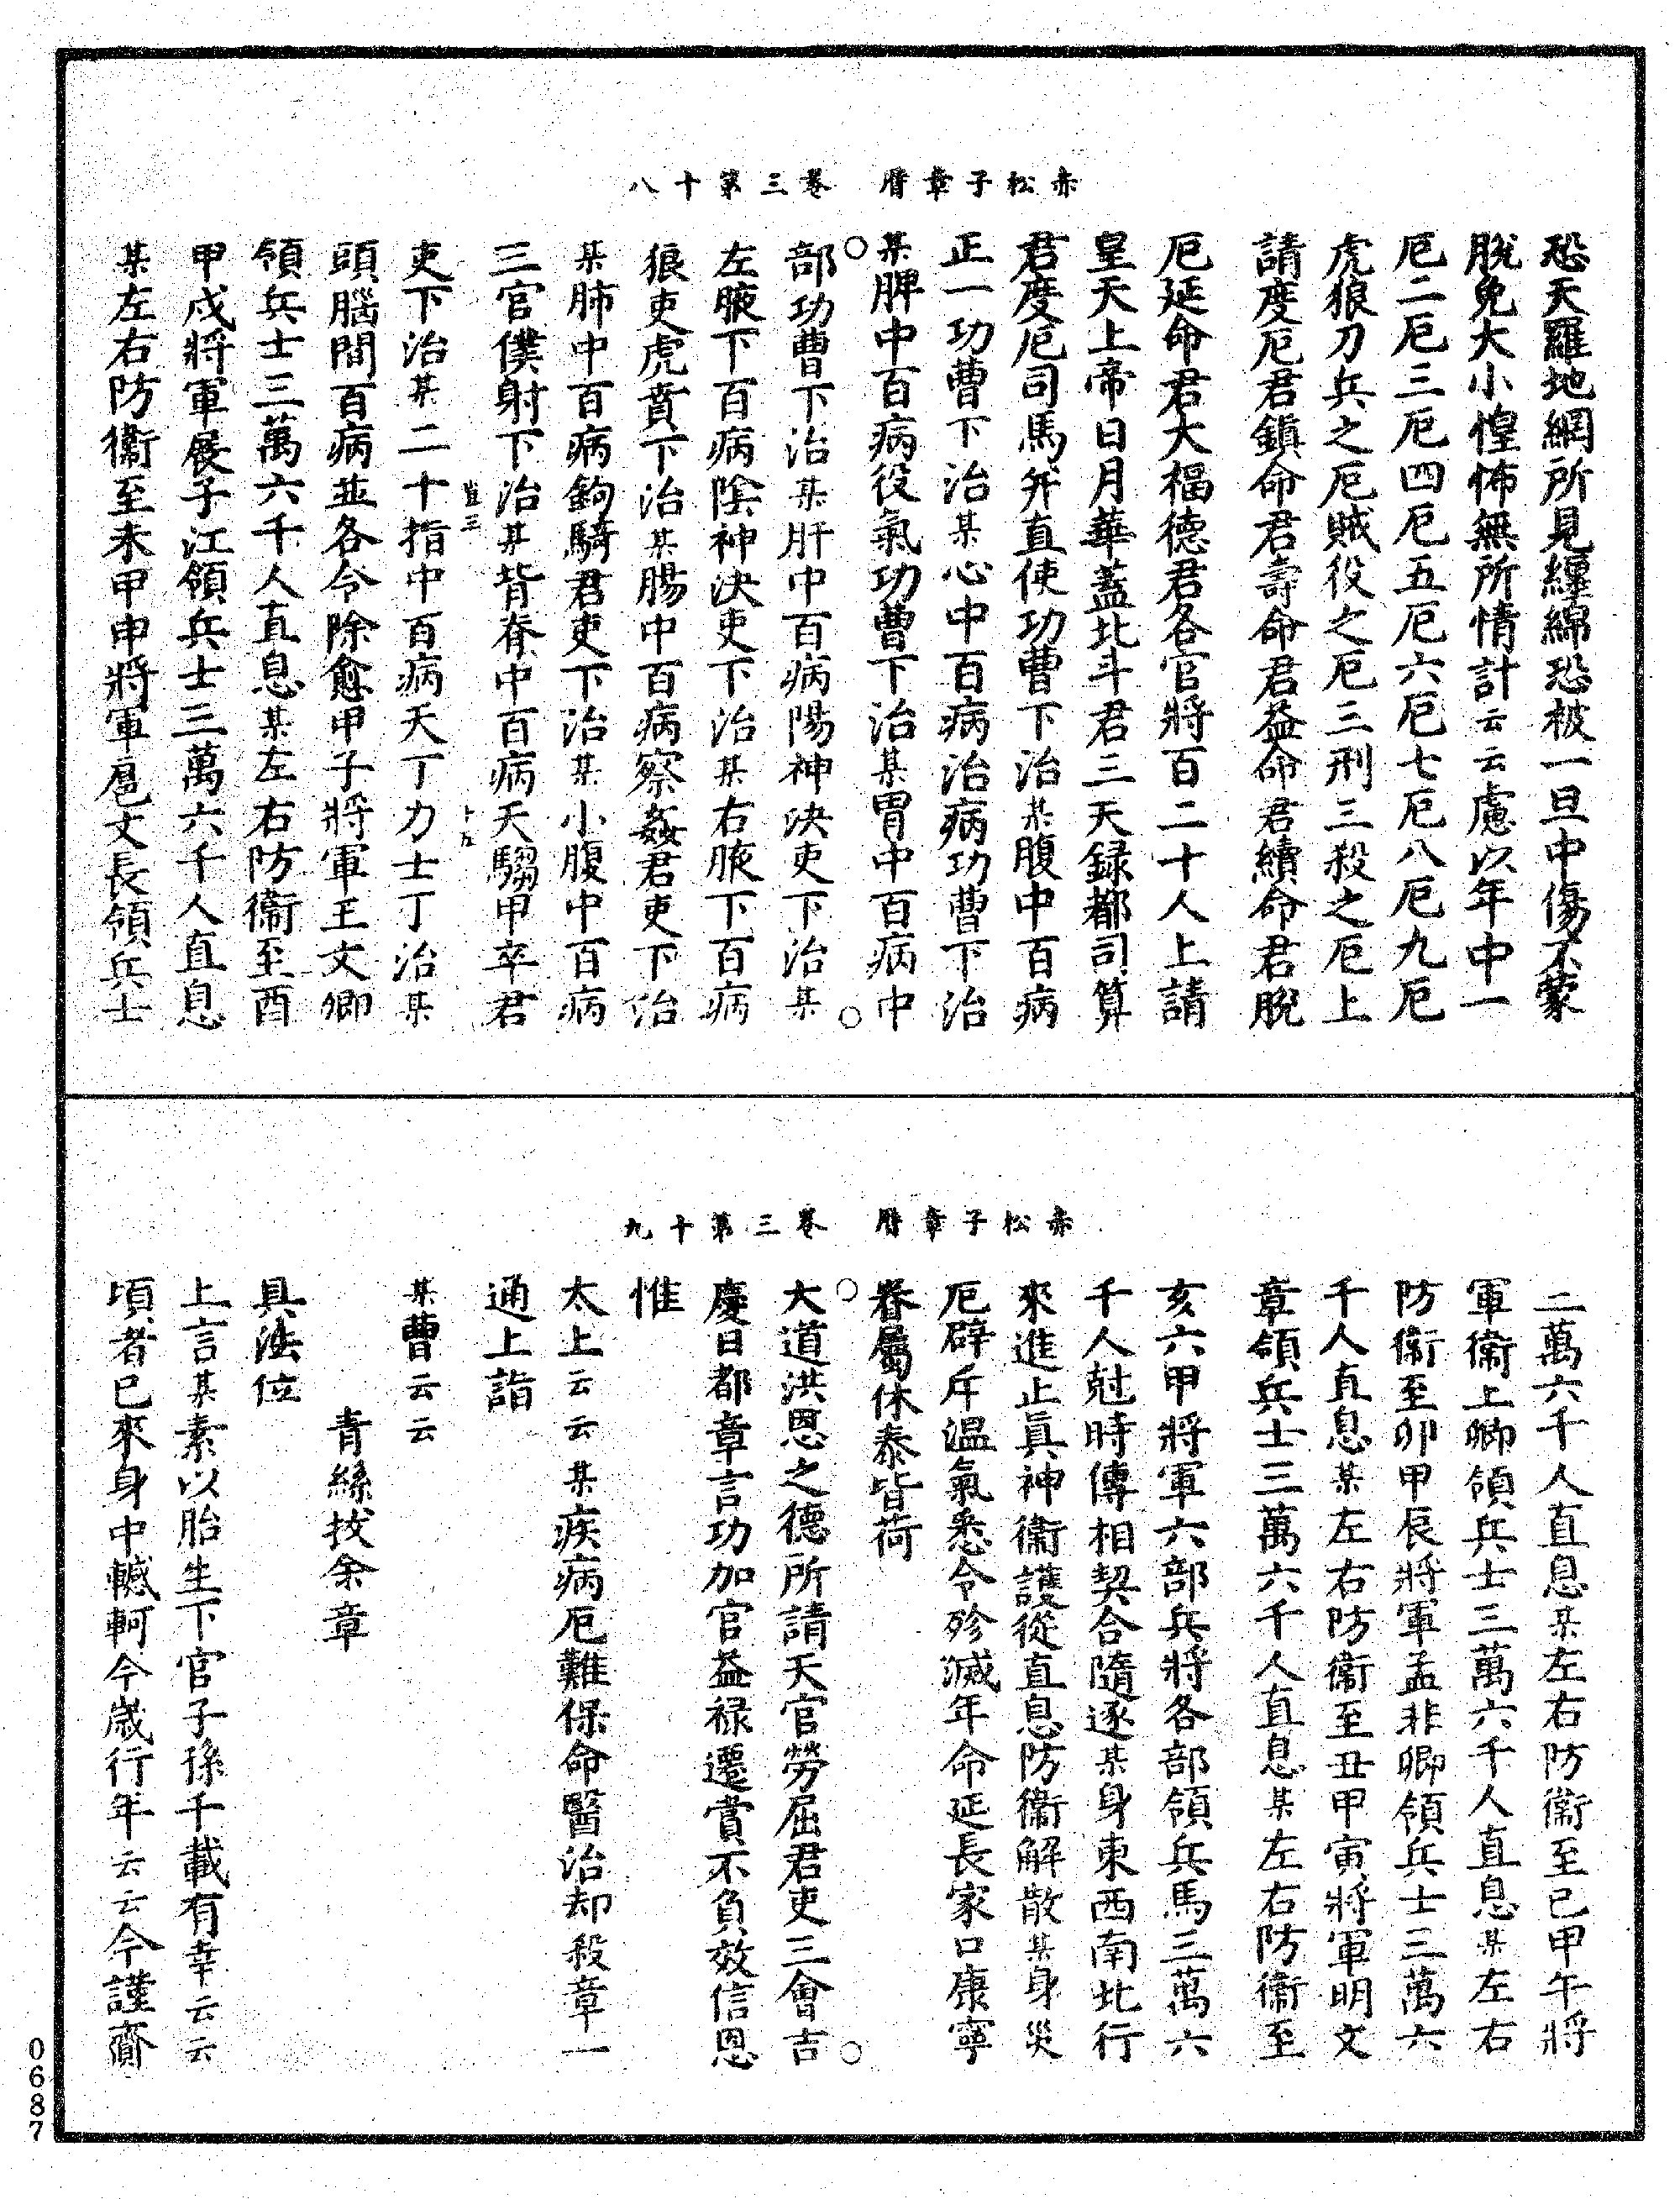 赤松子章曆　卷三第十八
恐天羅地網所見纏綿恐被一旦中傷不蒙
脫免大小惶怖無所情計云云慮以年中一
厄二厄三厄四厄五厄六厄七厄八厄九厄
虎狼刀兵之厄賊役之厄三刑三殺之厄上
請度厄君鎮命君壽命君益命君續命君脫
厄延命君大福德君各官將百二十人上請
皇天上帝日月華蓋北斗君三天錄都司算
君度厄司馬并直使功曹下治某腹中百病
正一功曹下治某心中百病治病功曹下治
某脾中百病役氣功曹下治某胃中百病中
部功曹下治某肝中百病陽神決吏下治某
左腋下百病陰神決吏下治某右腋下百病
狼吏虎賁下治某腸中百病察姦君吏下治
某肺中百病鉤騎君吏下治某小腹中百病
三官僕射下治某背脊中百病天騶甲卒君
吏下治某二十指中百病天丁力士丁治某
頭腦間百病並各令除愈甲子將軍王文卿
領兵士三萬六千人直息某左右防衞至酉
甲戌將軍展子江領兵士三萬六千人直息
某左右防衞至未甲申將軍扈文長領兵士
赤松子章曆　卷三第十九
二萬六千人直息某左右防衞至已甲午將
軍衞上卿領兵士三萬六千人直息某左右
防衞至卯甲辰將軍孟非卿領兵士三萬六
千人直息某左右防衞至丑甲寅將軍明文
章領兵士三萬六千人直息某左右防衞至
亥六甲將軍六部兵將各部領兵馬三萬六
千人尅時傳相契合隨逐某身東西南北行
來進止眞神衞護從直息防衞解散某身災
厄辟斥溫氣悉令殄滅年命延長家口康寧
眷屬休泰皆荷
大道洪恩之德所請天官勞屈君吏三會吉
慶日都章言功加官益祿遷賞不負效信恩
惟
太上云云某疾病厄難保命醫治却殺章一
通上詣
某曹云云
青絲拔余章
具法位
上言某素以胎生下官子孫千載有幸云云
頃者已來身中轗軻今歲行年云云今謹齎
0687